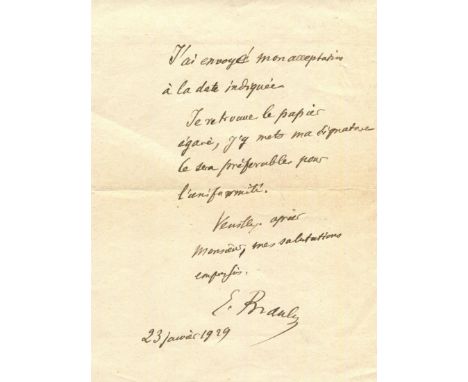 J'ai envoyé mon acceptation
à la date indiquée
Je retrouve le papier
égaré, j'y mets ma signature
le sera préférable pour
l'uniformité.
Veuillez, agréer
Monsieur, mes salutations
empressées.
E. Branly
23 janvier 1929